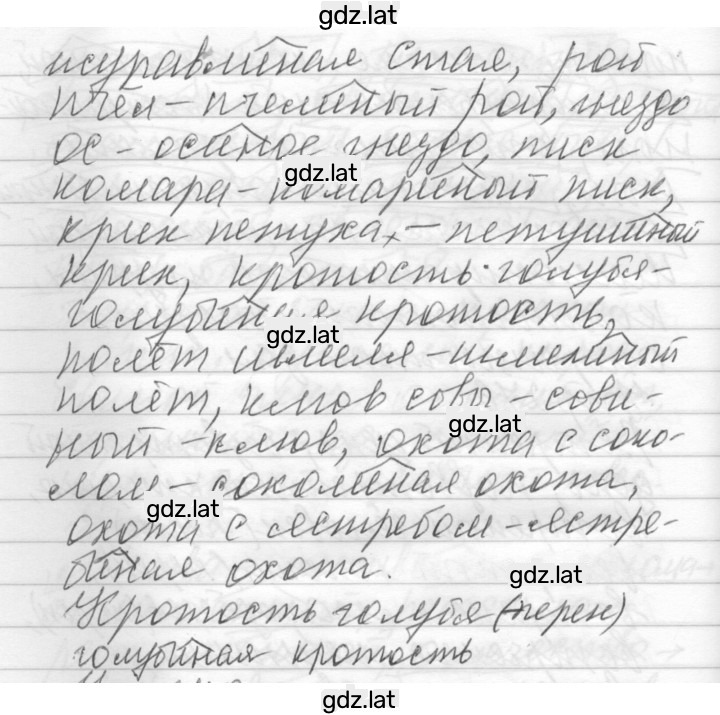 gdz.lat
журавлиная стая, рой
пчёл – пчелиный рой, гнездо
ос – осиное гнездо, писк
gdz.lat
комара – комариный писк,
крик петуха, – петушиный
крик, кротость голубя –
голубиная кротость,
gdz.lat
полёт шмеля – шмелиный
полёт, клюв совы – сови-
gdz.lat
ный – клюв, охота с соко-
лом – соколиная охота,
gdz.lat
охота с ястребом – ястре-
биная охота.
gdz.lat
Кротость голубя (перен)
голубиная кротость
gdz.lat